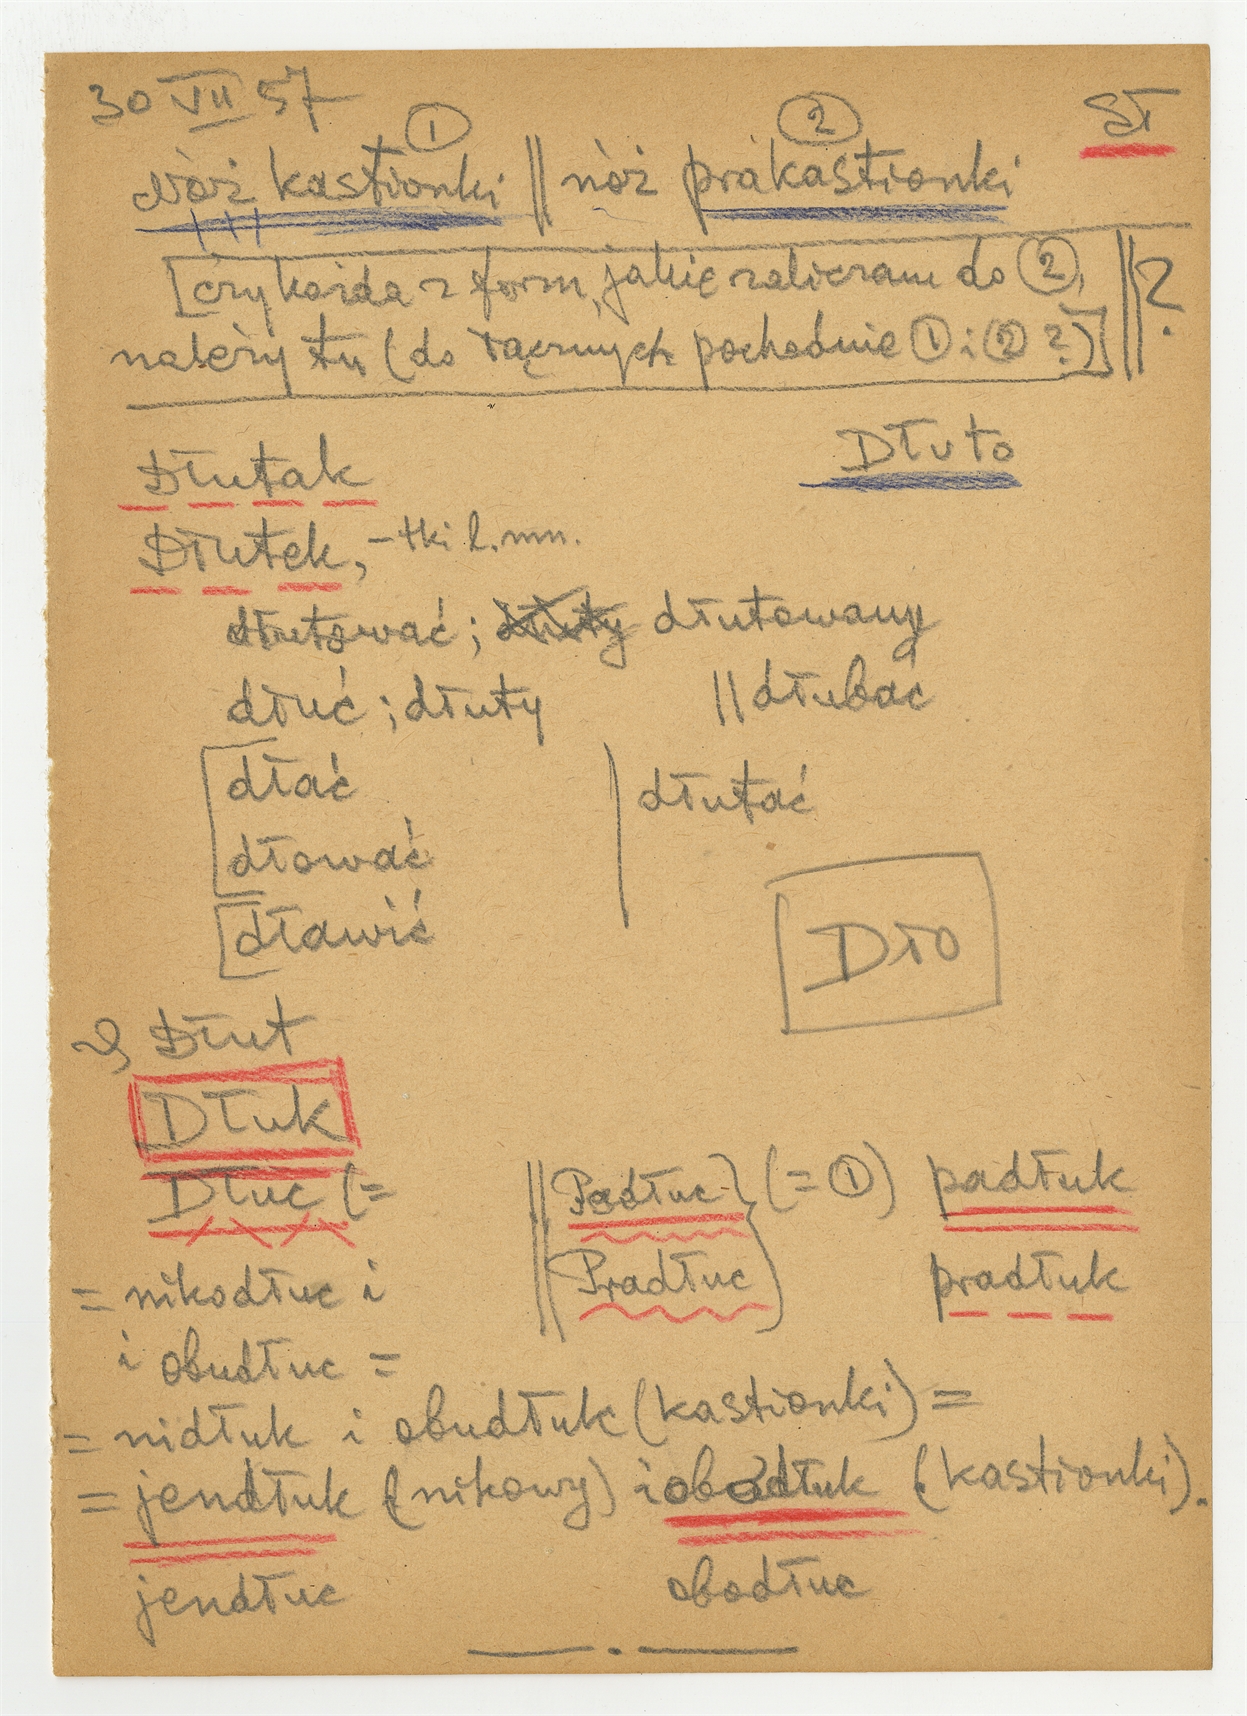 30 VII 57
① ② SŁ
nóż kastionki || nóż prakastionki
[czy każda z form, jakie zaliczam do ②,
należy tu (do łącznych pochodnie ① i ② ?)] || ?
Dłutak Dłuto
Dłutek, -tki l. mn.
dłutować; dłuty dłutowany
dłuć; dłuty || dłubać
[dłać | dłutać
dłować
[dławić
Dło
Dłut
Dłuk
Dłuc (= || Padłuc } (= ①) padłuk
= nikodłuc i Pradłuc } pradłuk
i obudłuc =
= nidłuk i obudłuk (kastionki) =
= jendłuk (nikowy) i obodłuk (kastionki).
jendłuc obodłuc